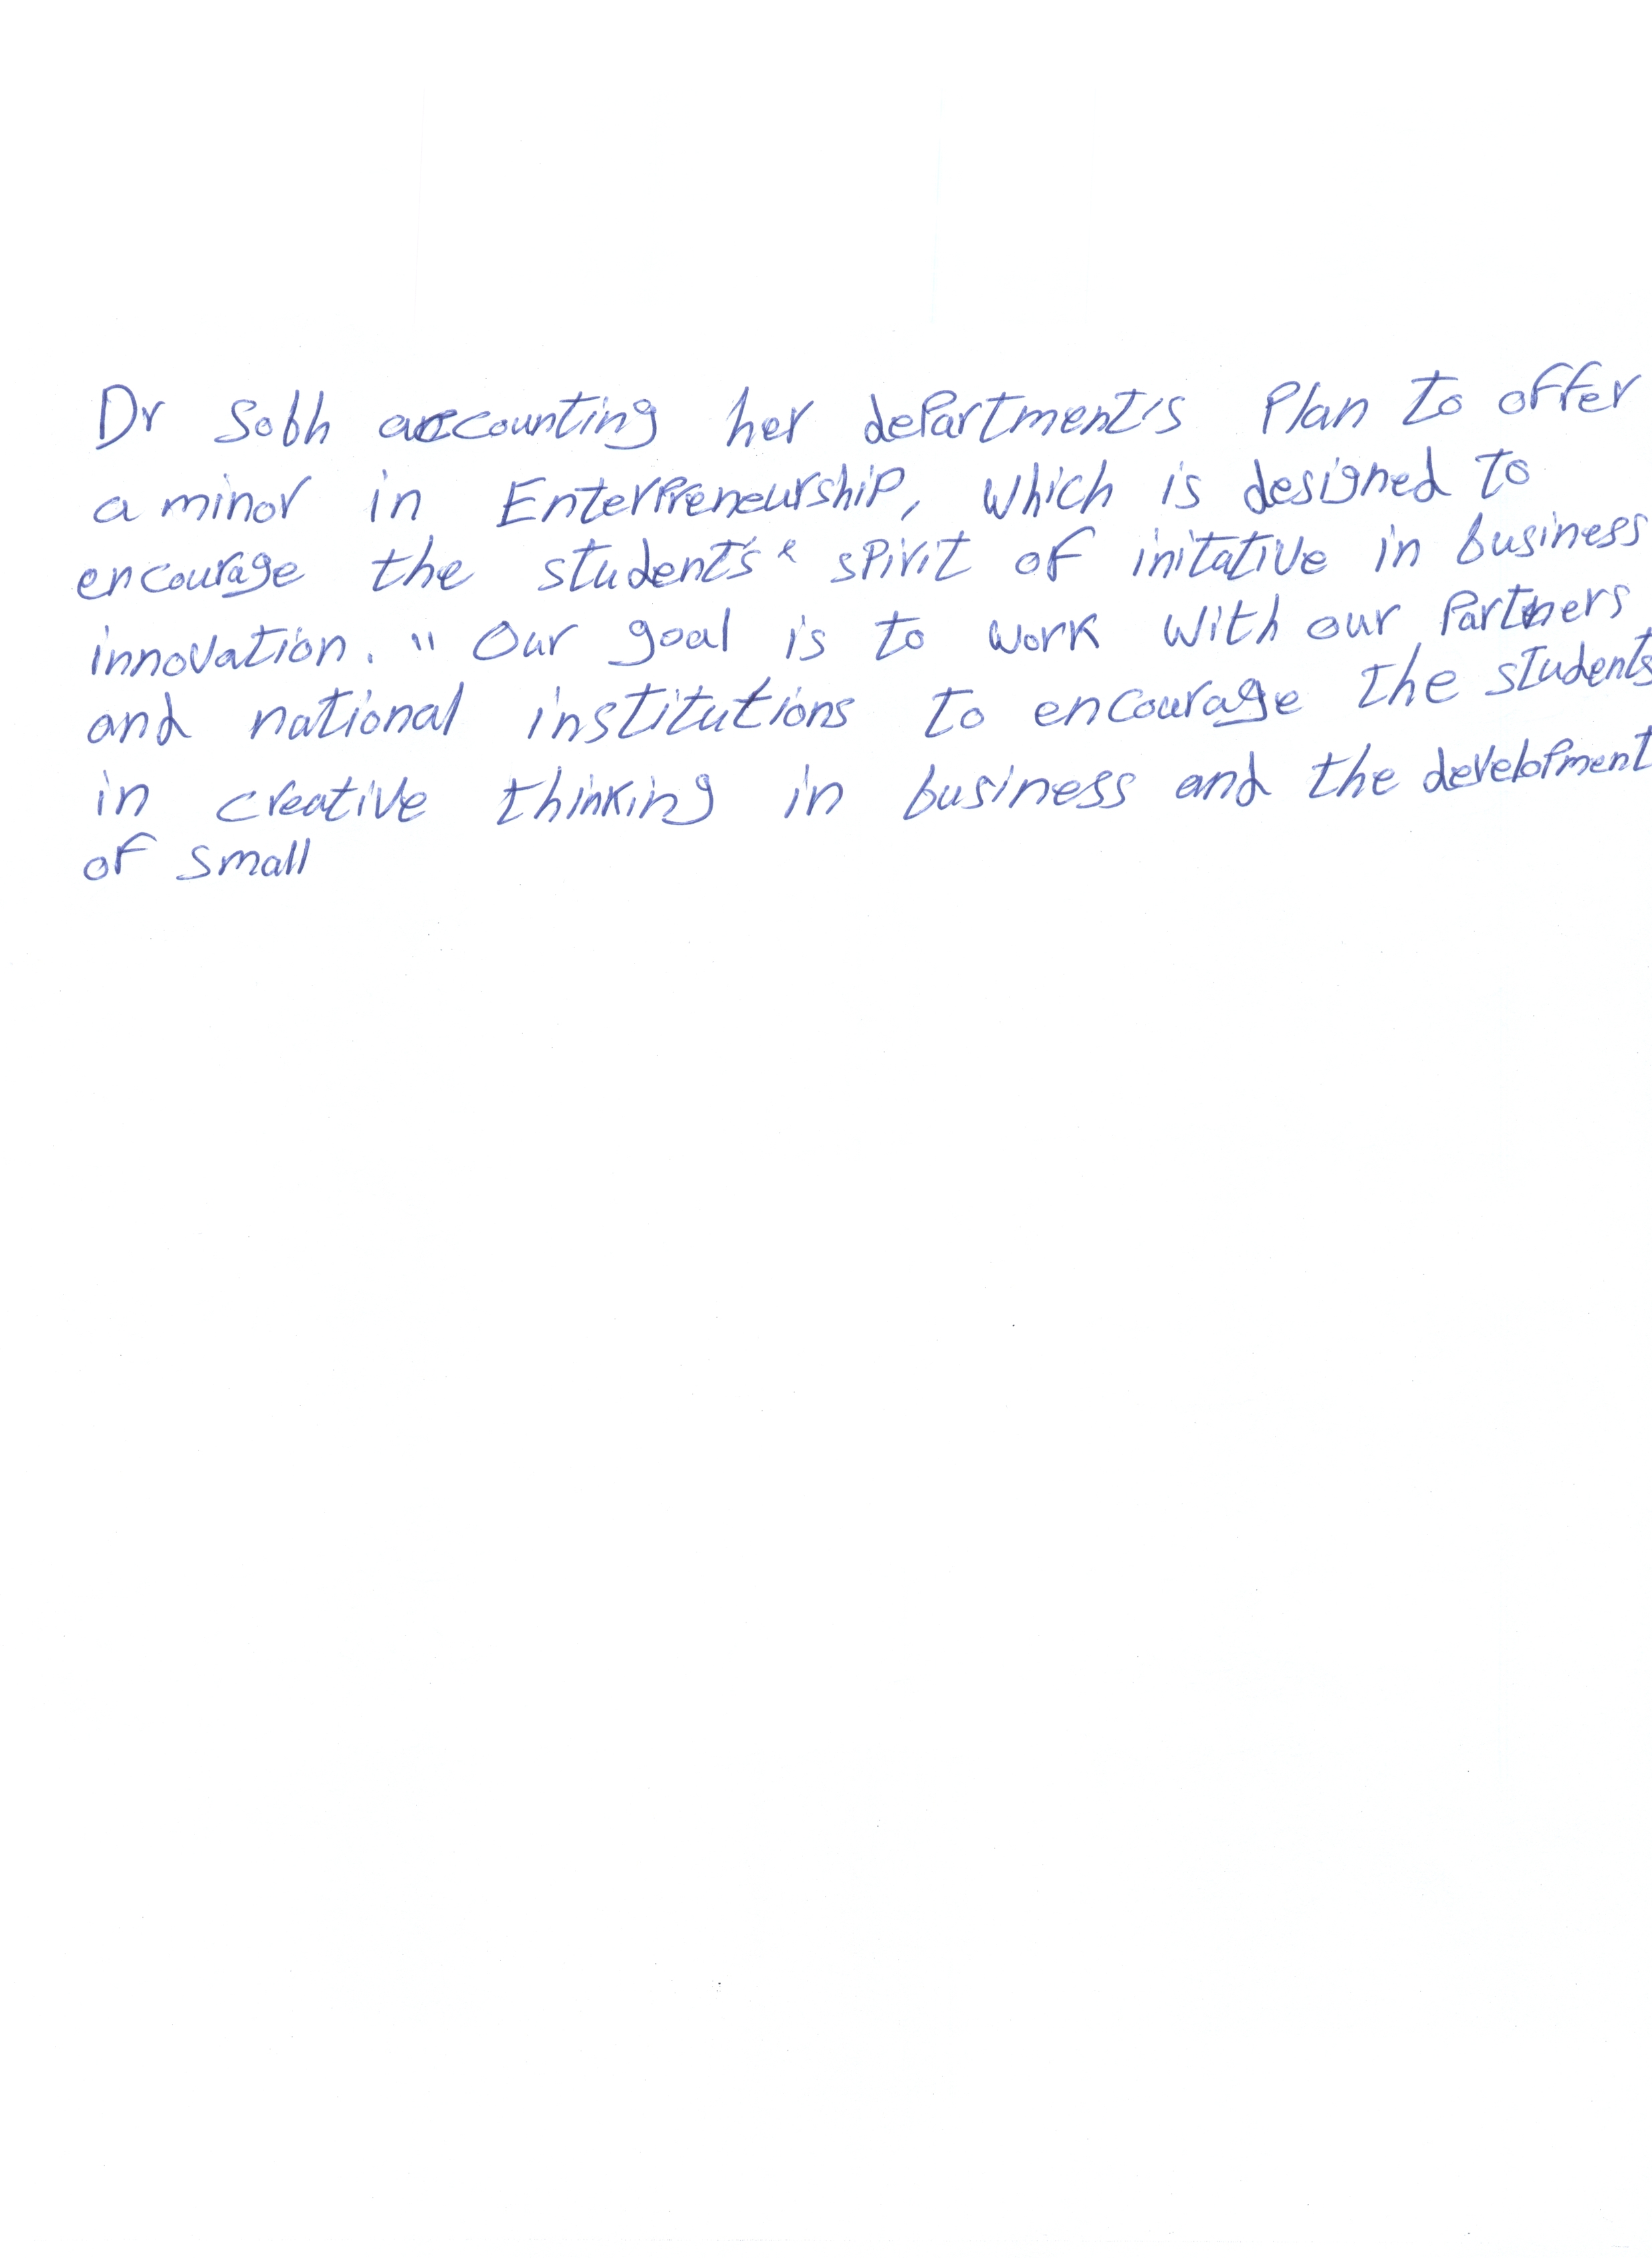 Dr Sobh accounting her department's Plan to offer
a minor in Enterpreneurship, which is designed to
encourage the student's' spirit of initative in business
innovation. " Our goal is to work with our Partners
and national institutions to encourage the students
in creative thinking in business and the development
of small